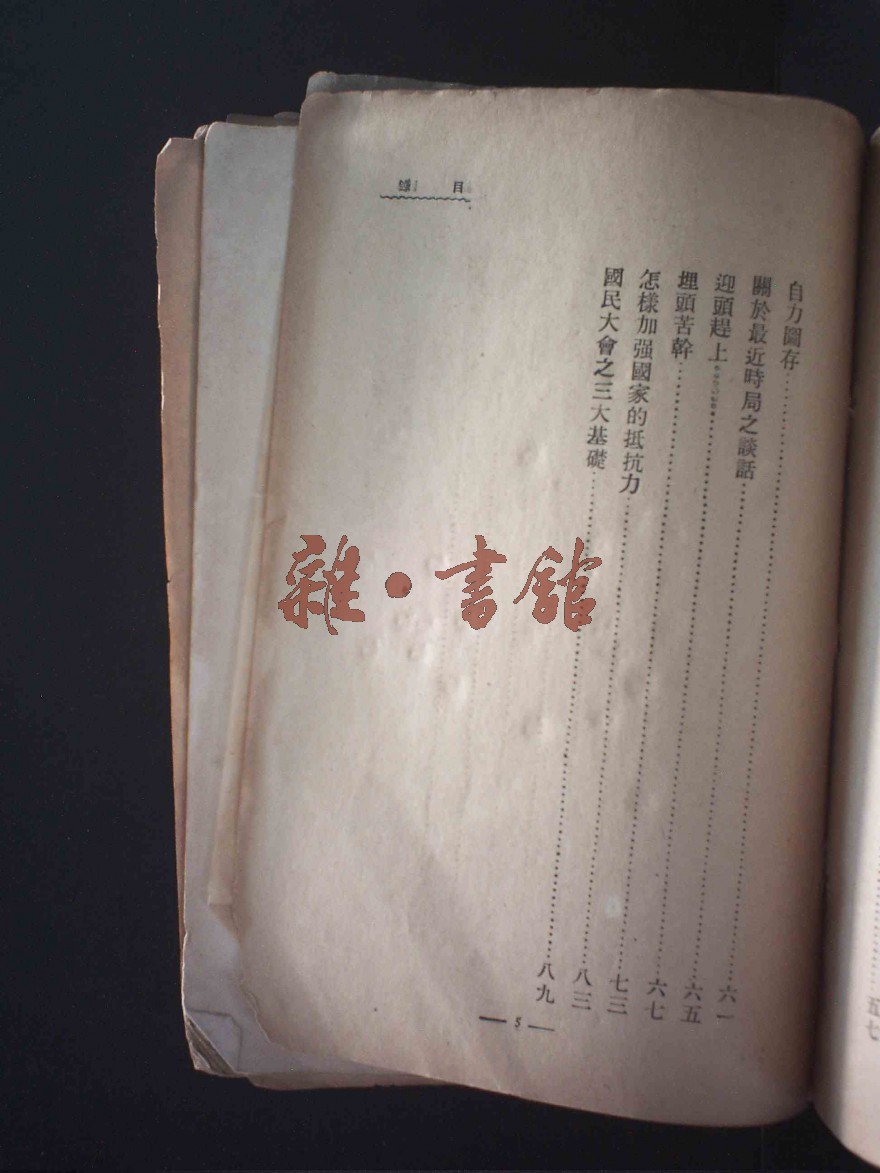 目錄
自力圖存……六一
關於最近時局之談話……六五
迎頭趕上……六七
埋頭苦幹……七三
怎樣加强國家的抵抗力……八三
國民大會之三大基礎……八九
— 5 —
五七
雜·書館